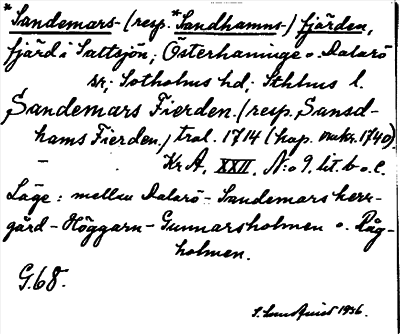 *Sandemars- (resp. *Sandhamns-) fjärden,
fjärd i Saltsjön, Österhaninge o. Dalarö
sr; Sotholms hd; Sthlms l.
Sandemars Fierden. (resp. Sansd-
hams Fierden.) tral. 1714 (kap. omkr. 1740).
— Kr A, XXII, N:o 9 lit. b o. c.
Läge: mellan Dalarö- Sandemars herr-
gård - Höggarn - Gunnarsholmen o. Råg-
holmen.
G.68.
S. 1936.